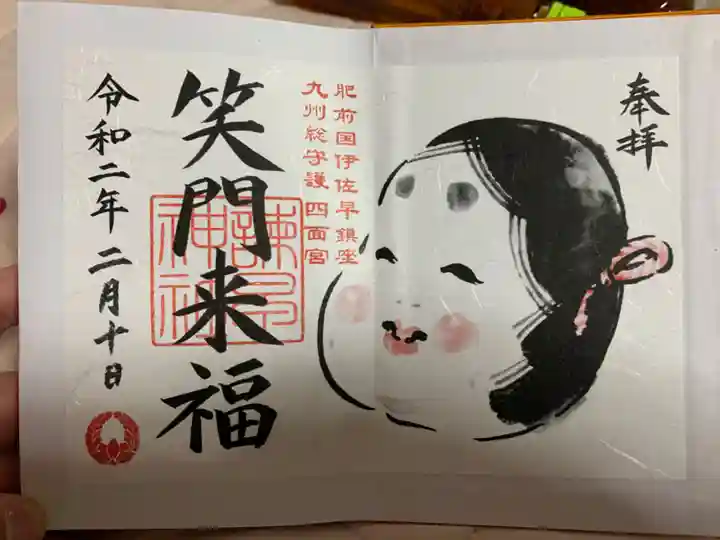 奉拝
肥前国伊佐早鎮座
九州総守護 四面宮
笑門来福
諫早神社
令和二年 二月十日